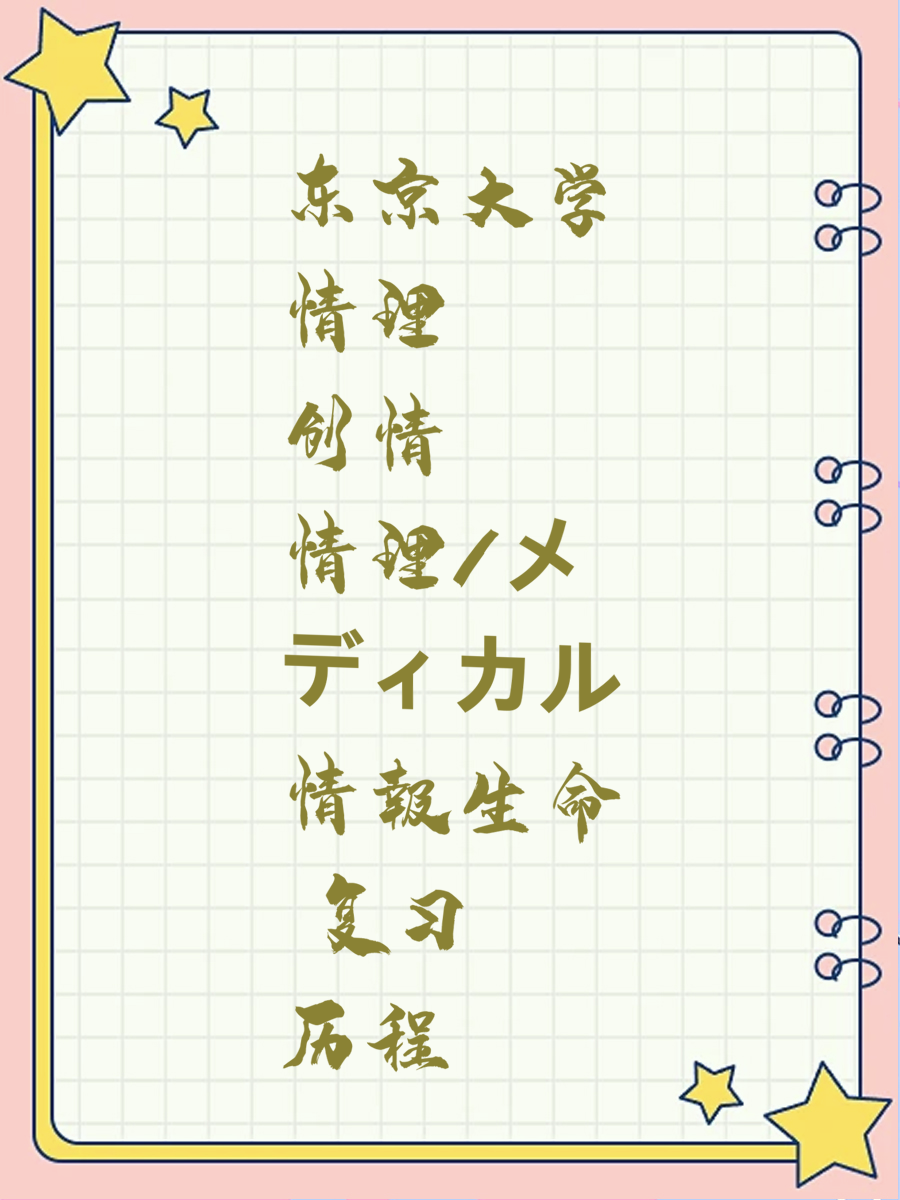 东京大学
情理
创情
情理/メ
ディカル
情報生命
复习
历程